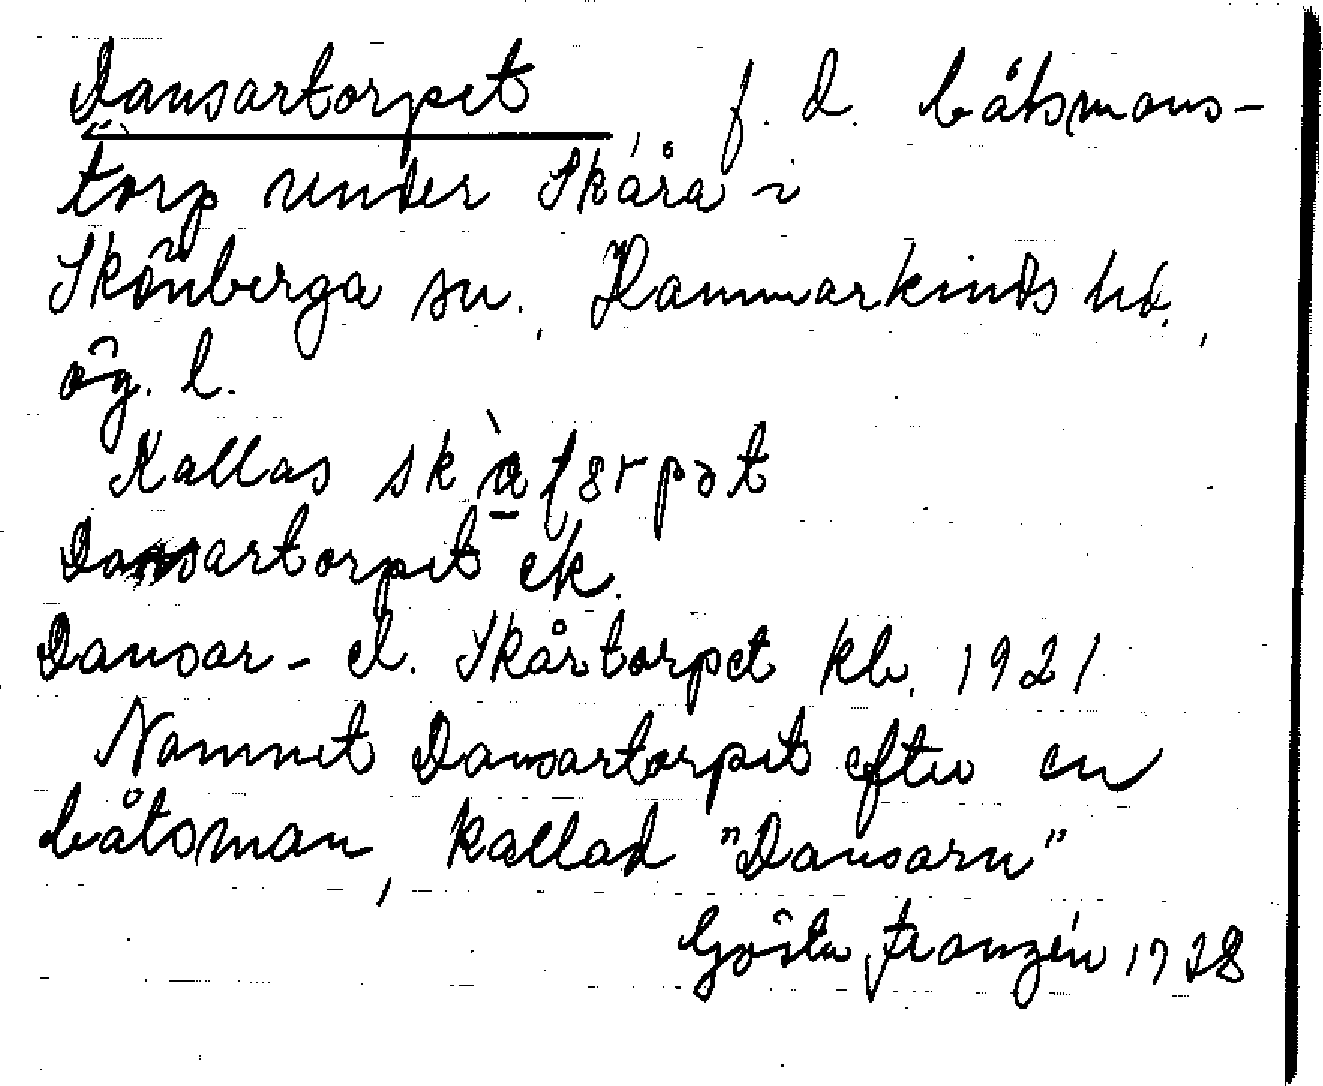 Dansartorpet, f. d. båtsmans-
torp under Skåra i
Skönberga sn., Hammarkinds hd.,
Ög. l.
Kallas
Dansartorpet ek.
Dansar- el. Skårtorpet kb. 1921
Namnet Dansartorpet efter en
båtsman, kallad "Dansarn"
Gösta Franzén 1928